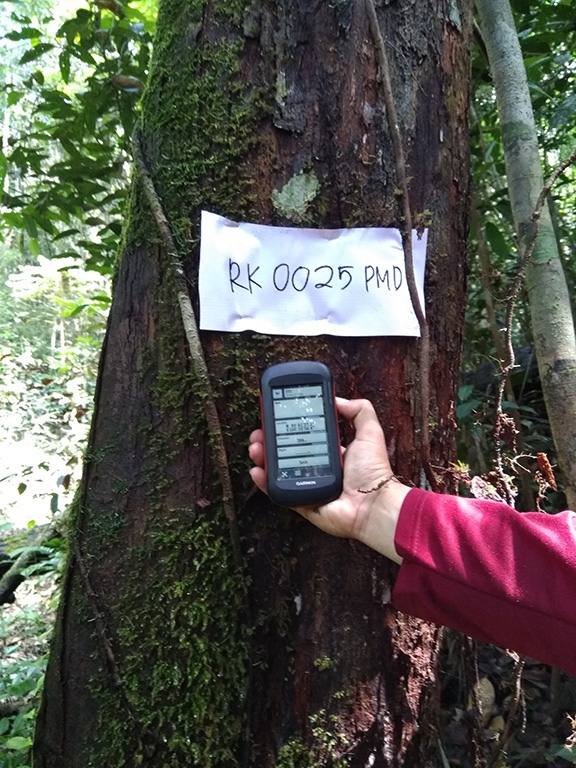 RK 0025 PMD
GARMIN